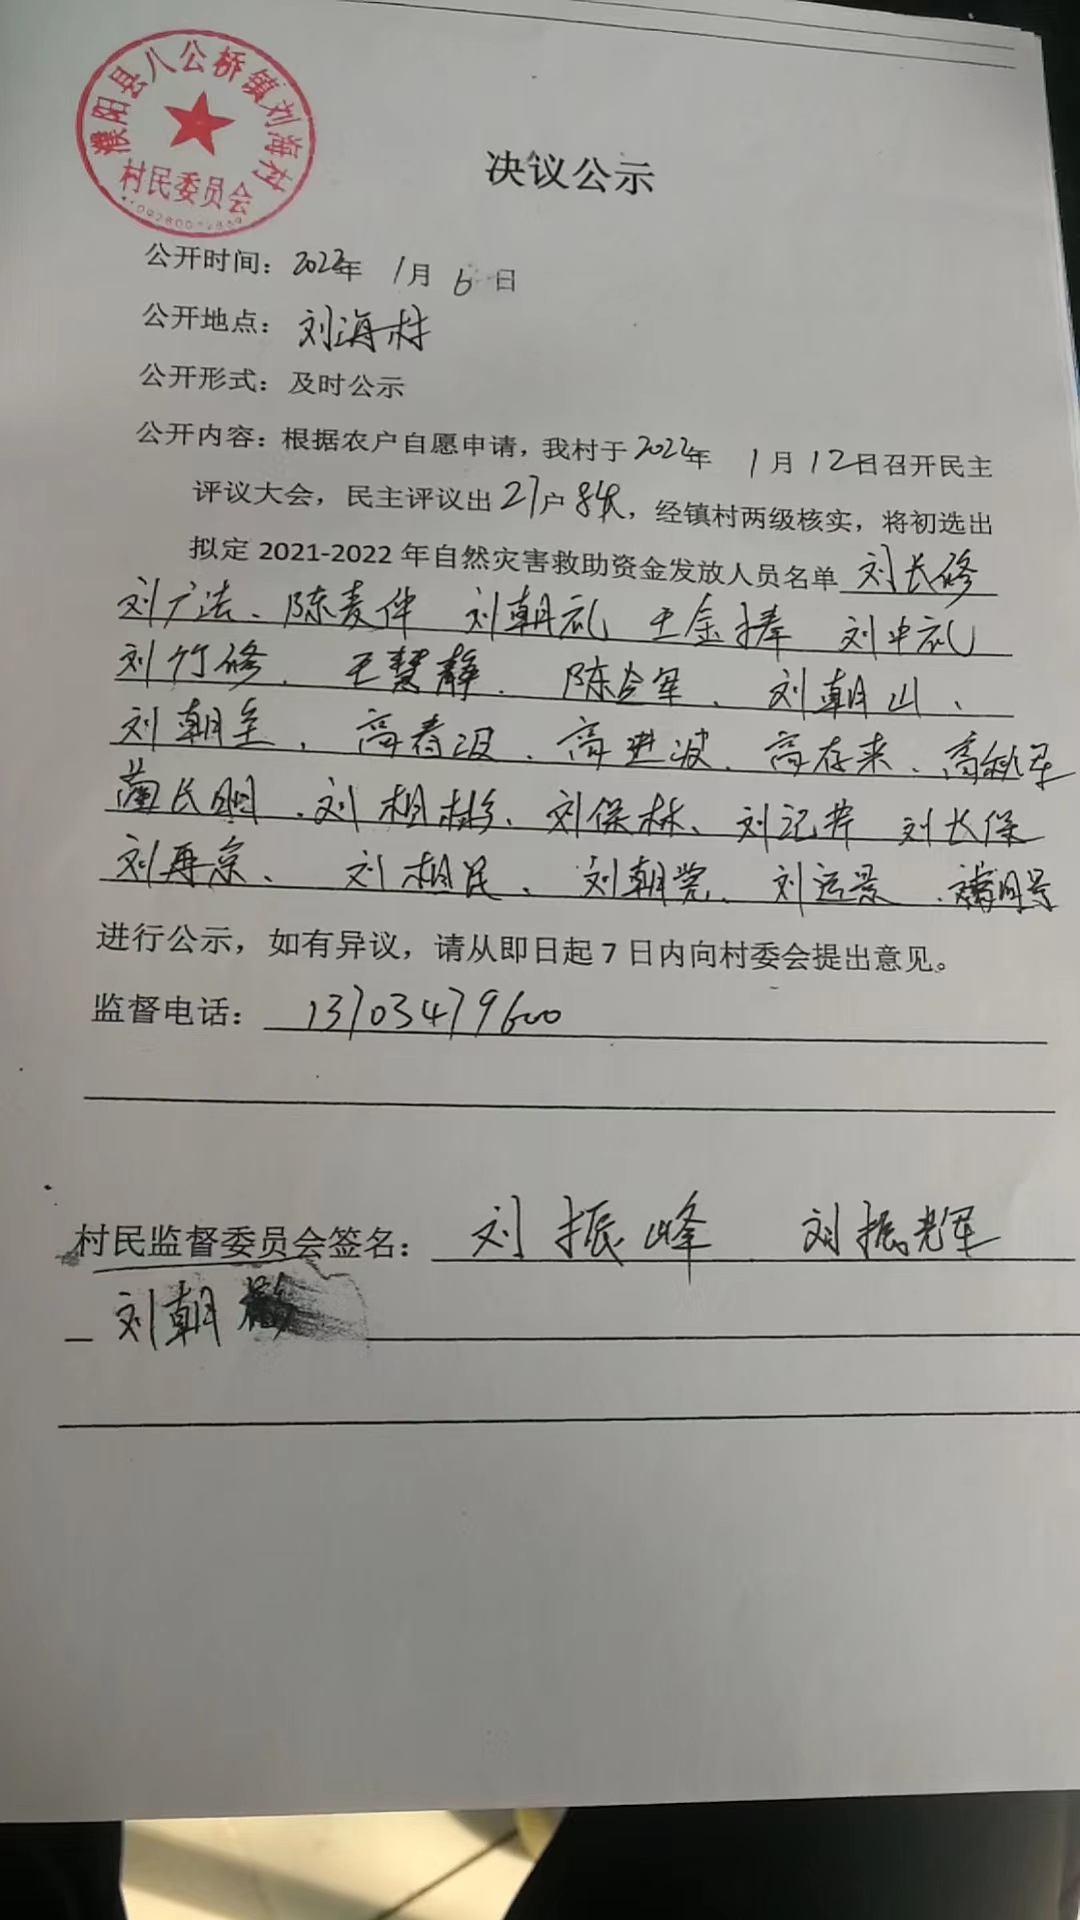 濮阳县八公桥镇刘海村
村民委员会
决议公示
公开时间：2022年 1月 6 日
公开地点：刘海村
公开形式：及时公示
公开内容：根据农户自愿申请，我村于2022年 1月12日召开民主
评议大会，民主评议出27户 ，经镇村两级核实，将初选出
拟定 2021-2022 年自然灾害救助资金发放人员名单 刘长修
刘广法、陈麦伴 刘朝礼 王金捧 刘中礼
刘竹修、王慧静、陈 军、刘朝山、
刘朝 、高春 、高进波、高存来、高秋军
长明、刘相彬、刘保林、刘记 刘长保
刘再京、刘相民、刘朝党、刘运景、
进行公示，如有异议，请从即日起 7 日内向村委会提出意见。
监督电话：13703479600
村民监督委员会签名：刘振峰 刘振辉
刘朝